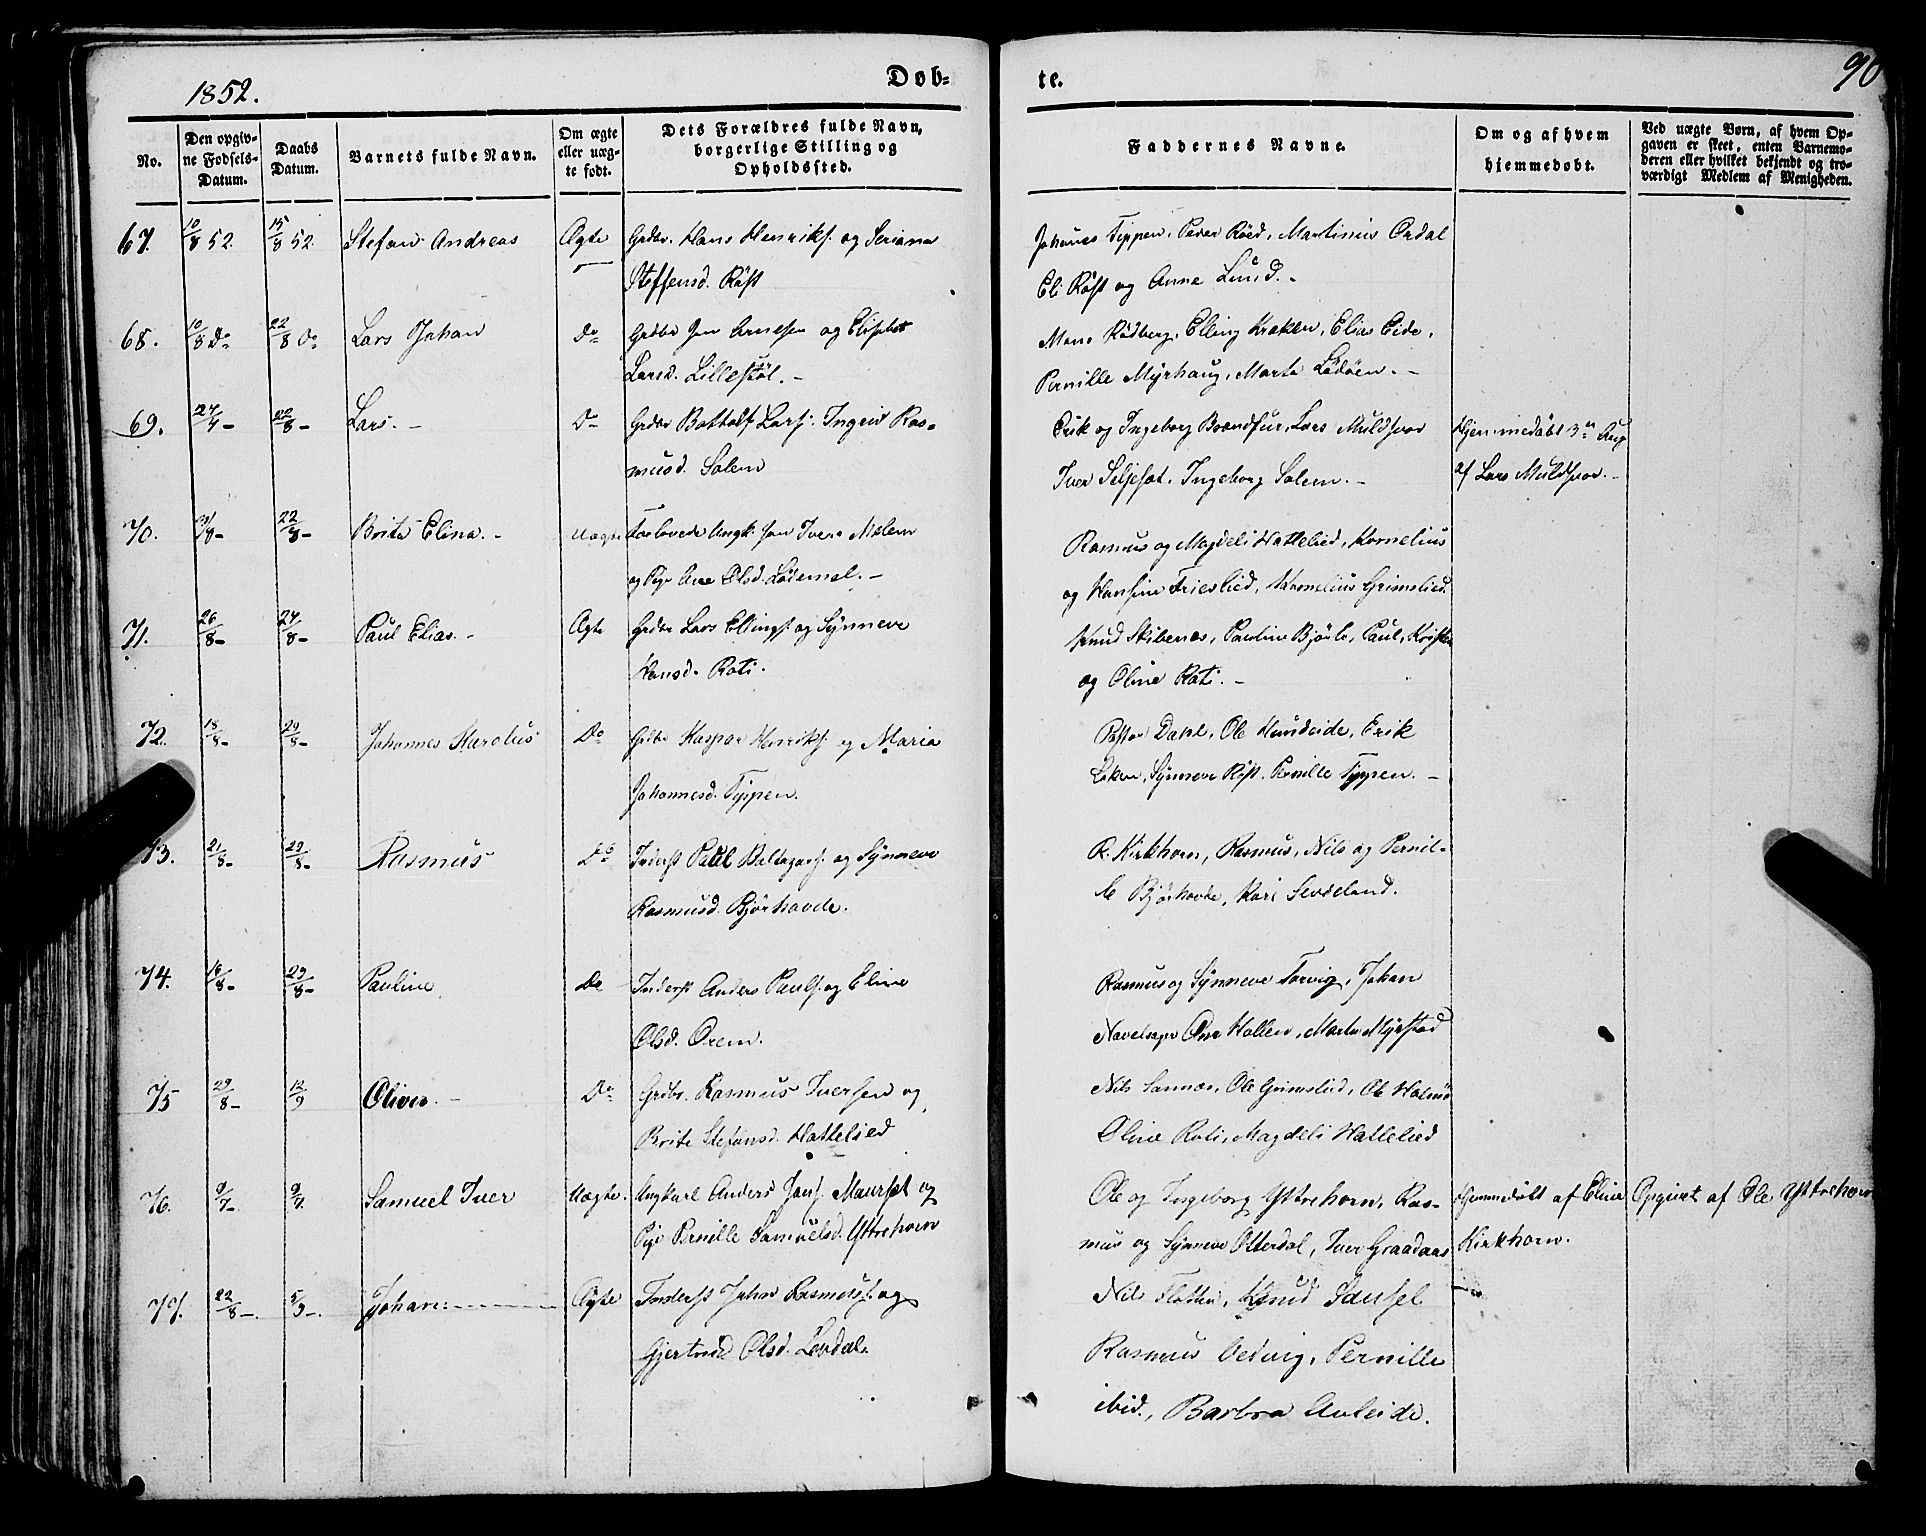 1852.
Døb-
te.
90
No.
Den opgiv-
ne Fødsels-
Datum.
Daabs
Datum.
Barnets fulde Navn.
Om ægte
eller uæg-
te født.
Dets Forældres fulde Navn,
borgerlige Stilling og
Opholdssted.
Faddernes Navne.
Om og af hvem
hjemmedøbt.
Ved uægte Børn, af hvem Op-
gaven er skeet, enten Barnemo-
deren eller hvilket bekjendt og tro-
værdigt Medlem af Menigheden.
67. 10/8 52 15/8 52 Stefan Andreas Ægte Grdbr. Hans Henriks. og Seriana
Steffensd. Røst
Johanes Tippen, Peder Röed, Martinus Ordal
Eli Røst og Anne Lund. -
68. 10/8 Do 22/8 Do Lars Johan Do Grdbr Jon Arnesen og Elisabet
Larsd. Lillestöl. -
Mons Rödberg, Elling Kraken, Elias Eide,
Pernille Myrhaug, Marta Lödöen. -
69. 24/7 - 22/8 - Lars. - Do Grdbr Bottolf Lars. Ingrid Ras-
musd. Solem
Erik og Ingeborg Brandsur, Lars Muldsvor
Iver Seljeset, Ingeborg Solem. -
Hjemmedöbt 3de Aug
af Lars Muldsvor. -
70. 31/8 - 22/8 - Brite Elina. - Uægte Forlovede Ungk. Jon Ivers Mælem
og Pige Ane Olsd. Lödemel. -
Rasmus og Magdeli Hattelied, Kornelius
og Hansine Frieslied, Kornelius Grimslied.
71. 26/8 - 24/8 - Paul Elias. - Ægte Grdbr Lars Ellings. og Synneve
Hansd. Roti.
Knud Skibenes, Pauline Bjørlo, Paul, Kristen
og Oline Roti. -
72. 18/8 - 29/8 - Johannes Karolus Do Grdbr Kaspar Henriks. og Maria
Johannesd. Typpen.
Pastor Dahl, Ole Hundeide, Erik
Leken, Synneve Røst, Pernille Typpen. -
73. 21/8 - 29/8 - Rasmus Do Inderst Paul Baltazars. og Synneve
Rasmusd. Bjørhovde.
R. Kirkhorn, Rasmus, Nils og Pernil-
le Bjørhovde, Kari Levdeland.
74. 16/8 - 29/8 - Pauline Do Inderst Anders Pauls. og Eline
Olsd. Orem.
Rasmus og Synneve Torvig, Johan
Navelsager Ane Hollen, Marta Myrstad
75 29/8 - 12/9 Oliver. - Do Grdbr. Rasmus Iversen og
Brite Stefansd. Hattelied
Nils Sannæs, Ole Grimslied, Ole Holmö
Oline Roti, Magdeli Hattelied
76. 9/7 - 9/7 Samuel Iver Uægte. Ungkarl Anders Jons. Maurset og
Pige Pernille Samuelsd. Yttrehorn
Ole og Ingeborg Yttrehorn, Ras-
mus og Synneve Otterdal, Iver Graadaas
Hjemmedöbt af Eline
Kirkhorn.
Opgivet af Ole Yttrehorn
77. 22/8 -. 5/9 -. Johan: Ægte Inderst John Rasmus. og
Gjertrud Olsd. Levdal.
Nils Flotten, Knud Sausel
Rasmus Oedvig, Pernille
ibid., Barbra Auleide.